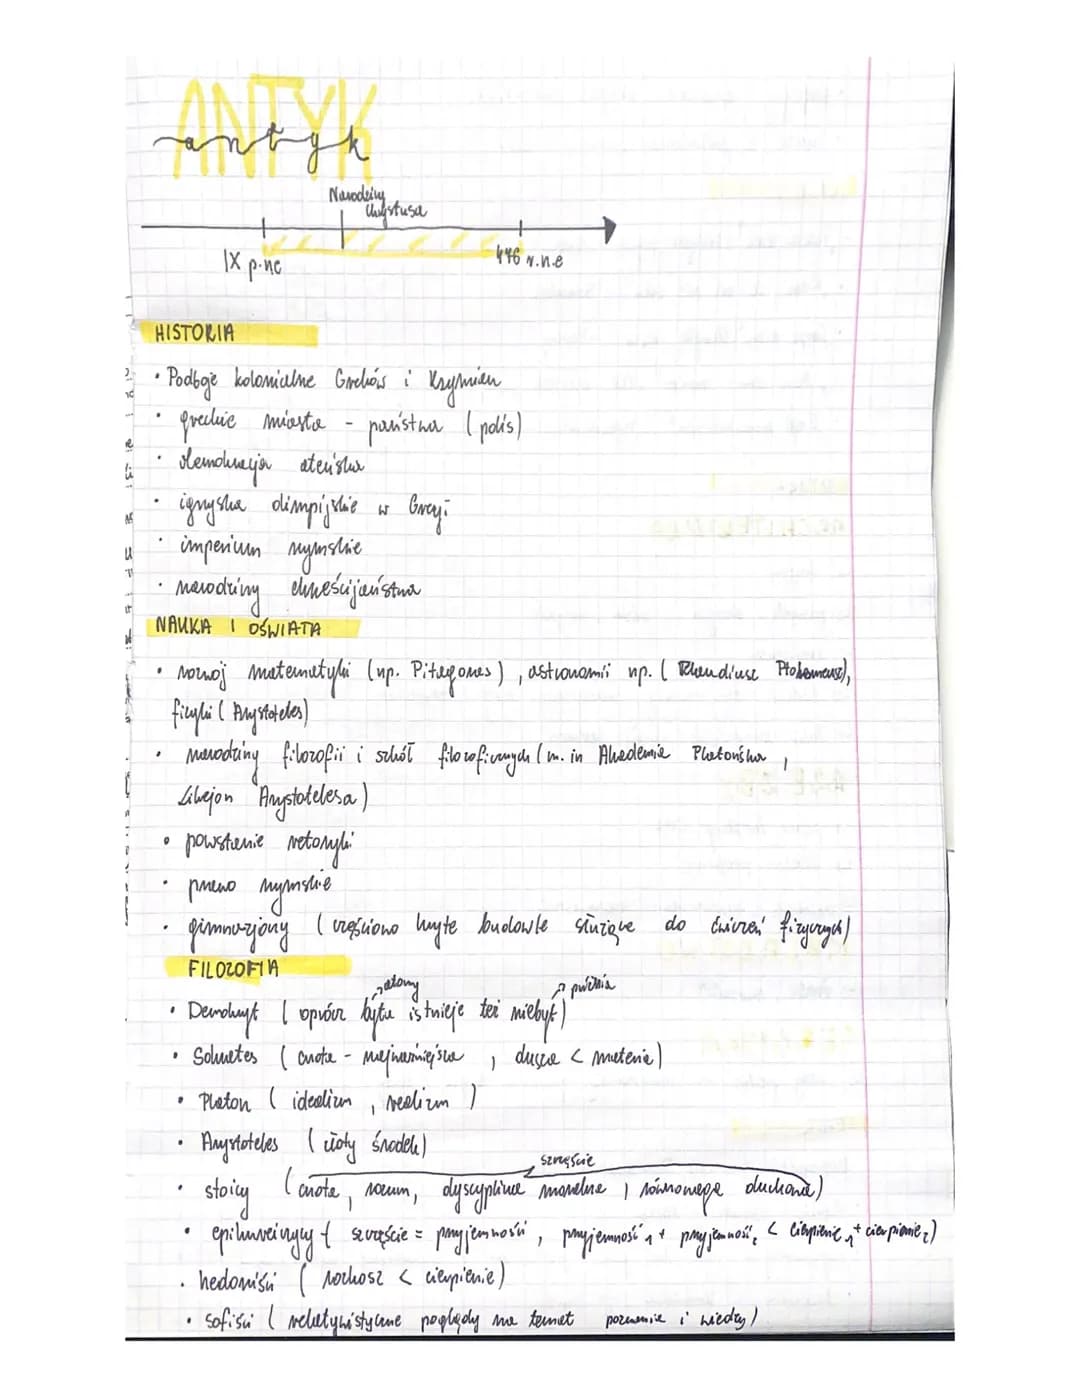 ANTYK
antyk
Narodziny
Chrystusa
IX p.ne
476 n.n.e
HISTORIA
• Podboje kolonialne Greków i Rzymian
• greckie miasta - państwa (polis)
• demokracja ateńska
• igrzyska olimpijskie w Grecji
• imperium rzymskie
• narodziny chrześcijaństwa
NAUKA I OŚWIATA
• rozwój matematyki (np. Pitagoras), astronomii np. (Klaudiusz Ptolemeusz),
fizyki (Arystoteles)
• narodziny filozofii i szkół filozoficznych (m. in Akademia Platońska,
Likejon Arystotelesa)
• powstanie retoryki
• prawo rzymskie
• gimnazjony (częściowo kryte budowle służące do ćwiczeń fizycznych)
FILOZOFIA
atomy próżnia
• Demokryt (oprócz bytu istnieje też niebyt)
• Sokrates (cnota - najważniejsza, dusza < materia)
• Platon (idealizm, realizm)
• Arystoteles (złoty środek)
szczęście
• stoicy (cnota, rozum, dyscyplina moralna, równowaga duchowa)
• epikurejczycy (szczęście = przyjemność, przyjemność₁ + przyjemność₂ < cierpienie₁ + cierpienie₂)
• hedoniści (rozkosz < cierpienie)
• sofiści (relatywistyczne poglądy na temat poznania i wiedzy)